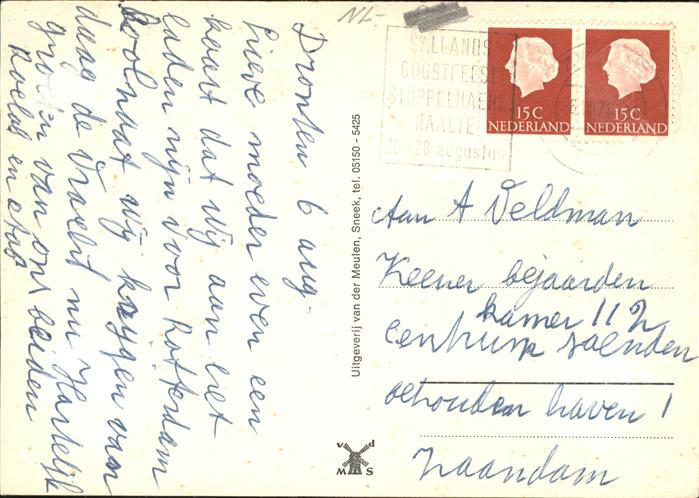 Dronten 6 aug-
Lieve moeder even een
kaart dat wij aan het
laden zijn voor Rotterdam
Koolzaat wij krijgen van
daag de vracht nu Hartelijk
groeten van ons beiden
Roelof en
Uitgeverij van der Meulen, Sneek, tel. 05150 - 5425
NL-
SALLANDS
OOGSTFEEST
STOPPELHAENE
RAALTE
26-28 augustus
15C
NEDERLAND
15C
NEDERLAND
Aan A Veldman
bejaarden
kamer 112
centrum zaenden
oehouden haven 1
Zaandam
v d
M S